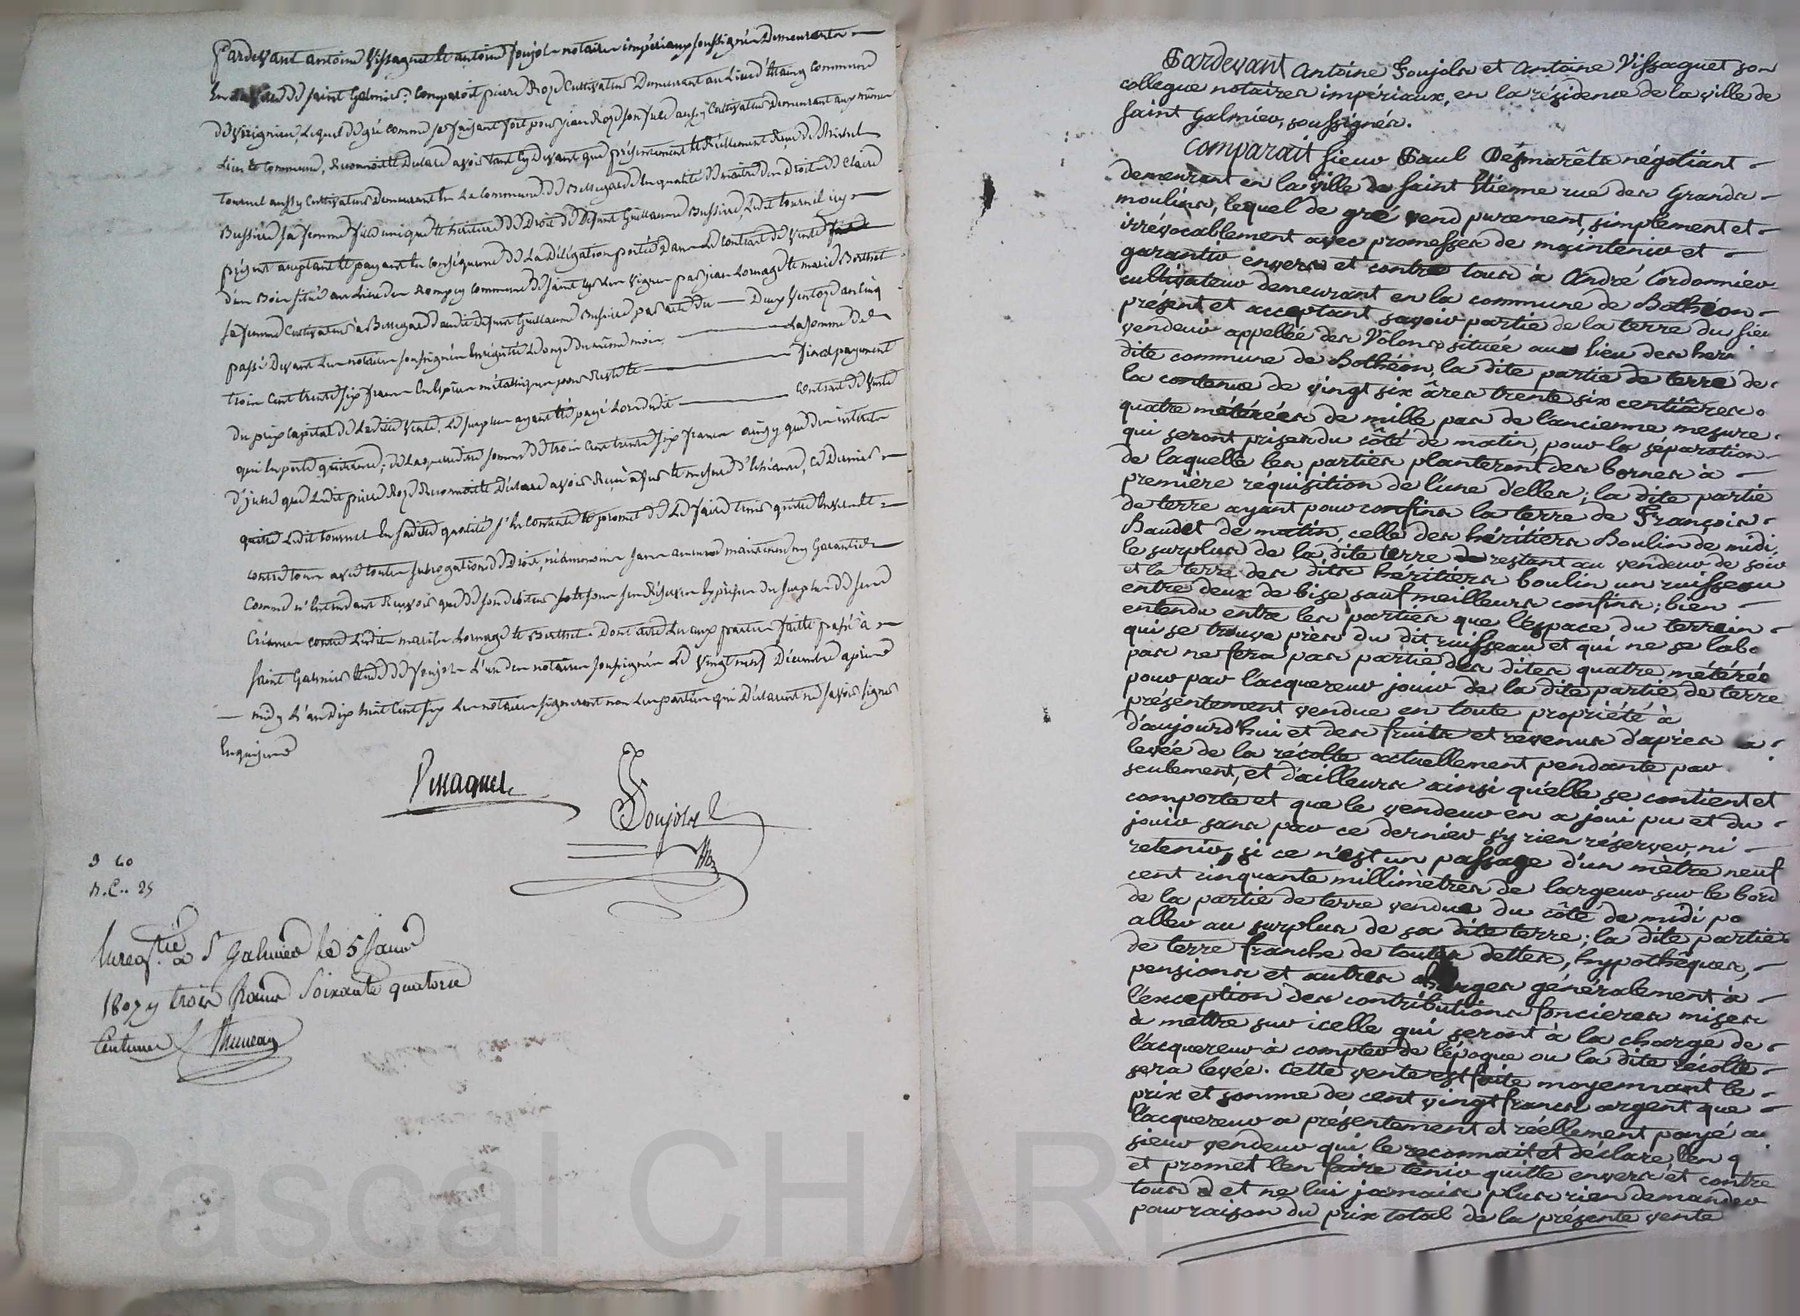 Pardevant antoine Vissaguet et antoine Soujol notaires impériaux soussignés Demeurants
En la ville de Saint Galmier, Comparoit pierre Roze Cultivateur Demeurant au Lieu d' commune
de Virignieu, Lequel de gré comme se faisant fort pour jean Roze son frere aussy Cultivateur demeurant aux mêmes
Lieu et Commune, Reconnoit et Declare avoir tant cy devant que présentement et Réellement Reçu de Michel
Tournel aussy Cultivateur demeurant en La Commune de Bellegarde En qualité de maitre des Droits de Claire
Bussiere Sa femme fille unique et héritiere de Droit de Défunt Guillaume Bussiere, Ledit tournel icy
présent acceptant et payant En Conséquence de La Délégation portée Dans Le Contrat de Vente
d'un Bois situé au Lieu des commune de Saint Cyr Les Vignes par jean Lornage et marie Berthet
sa femme Cultivateurs à Bellegarde audit Défunt Guillaume Bussiere par acte du Deux Ventose an Cinq
passé Devant Les notaires soussignés Enrégistré Le onze du même mois, La somme de
trois Cent trente six francs En Espèces métalliques pour Reste et final payement
du prix Capital de Ladite Vente, Le surplus ayant été payé Lors dudit Contrat de Vente
qui En porte quittance, de Laquelle dite somme de trois Cent trente six francs ainsy que des intérêts
d'jcelle que Ledit pierre Roze Reconnoit et Déclare avoir Reçu à fur et mesure d'Echéance, Ce Dernier
quitte Ledit tournel En sadite qualité s'En Contente et promet de Le faire tenir quitte Envers et
contre tous avec toutes subrogations de Droit, néanmoins sans aucune maintenue ny Garantie
Comme n'Entendant Recevoir que de son débiteur et sous son Réserve Expresse du surplus de sa
Créance contre Lesdits mariés Lornage et Berthet. Dont acte Lu aux parties fait et passé à
Saint Galmier Etude de Soujol L'un des notaires soussignés Le Vingt neuf Décembre après
midy L'an Dix huit Cent six Les notaires signeront non Les parties qui Déclarent ne savoir signer
Enquises
Vissaguet
Soujol
3 60
D.C.. 25
Enregtré à St Galmier le 5 Janer
1807 trois francs soixante quatorze
Centimes
Pardevant Antoine Soujols et Antoine Vissaguet son
collegue notaires impériaux, en la résidence de la ville de
Saint Galmier, soussignés.
Comparait sieur Paul Desmarêts négotiant
demeurant en la ville de Saint Etienne rue des Grands
moulins, lequel de gré vend purement, simplement et
irrévocablement avec promesses de maintenir et
garantir envers et contre tous à André Cordonnier
cultivateur demeurant en la commune de Bothéon
présent et acceptant savoir partie de la terre du sieur
vendeur appellée des Volons située au lieu des
dite commune de Bothéon, la dite partie de terre de
la contenue de vingt six âres trente six centiâres
quatre métérées de mille pas de l'ancienne mesure
qui seront prises du côté de matin, pour la séparation
de laquelle les parties planteront des bornes à
première réquisition de l'une d'elles; la dite partie
de terre ayant pour confins la terre de François
Baudet de matin, celle des héritiers Boulin de midi,
le surplus de la dite terre restant au vendeur de soir
et la terre des dits héritiers boulin un ruisseau
entre deux de bise sauf meilleurs confins; bien
entendu entre les parties que l'espace du terrein
qui se trouve près du dit ruisseau et qui ne se labo
pas ne fera pas partie des dites quatre métérées
pour par l'acquereur jouir de la dite partie de terre
présentement vendue en toute propriété à
d'aujourd'hui et des fruits et revenus d'après la
levée de la récolte actuellement pendante par
seulement, et d'ailleurs ainsi qu'elle se contient et
comporte et que le vendeur en a joui pu et du
jouir sans par ce dernier s'y rien réserver, ni
retenir, si ce n'est un passage d'un mètre neuf
cent cinquante millimètres de largeur sur le bord
de la partie de terre vendue du côté de midi po
aller au surplus de sa dite terre; la dite partie
de terre franche de toutes dettes, hypothêques,
pensions et autres charges généralement à
l'exception des contributions foncieres mises
à mettre sur icelle qui seront à la charge de
l'acquereur à compter de l'époque où la dite récolte
sera levée. Cette vente est faite moyennant le
prix et somme de cent vingt francs argent que
l'acquereur a présentement et réellement payé au
sieur vendeur qui le reconnait et déclare, l'en q
et promet l'en faire tenir quitte envers et contre
tous et ne lui jamais plus rien demander
pour raison du prix total de la présente vente
Pascal CHAR